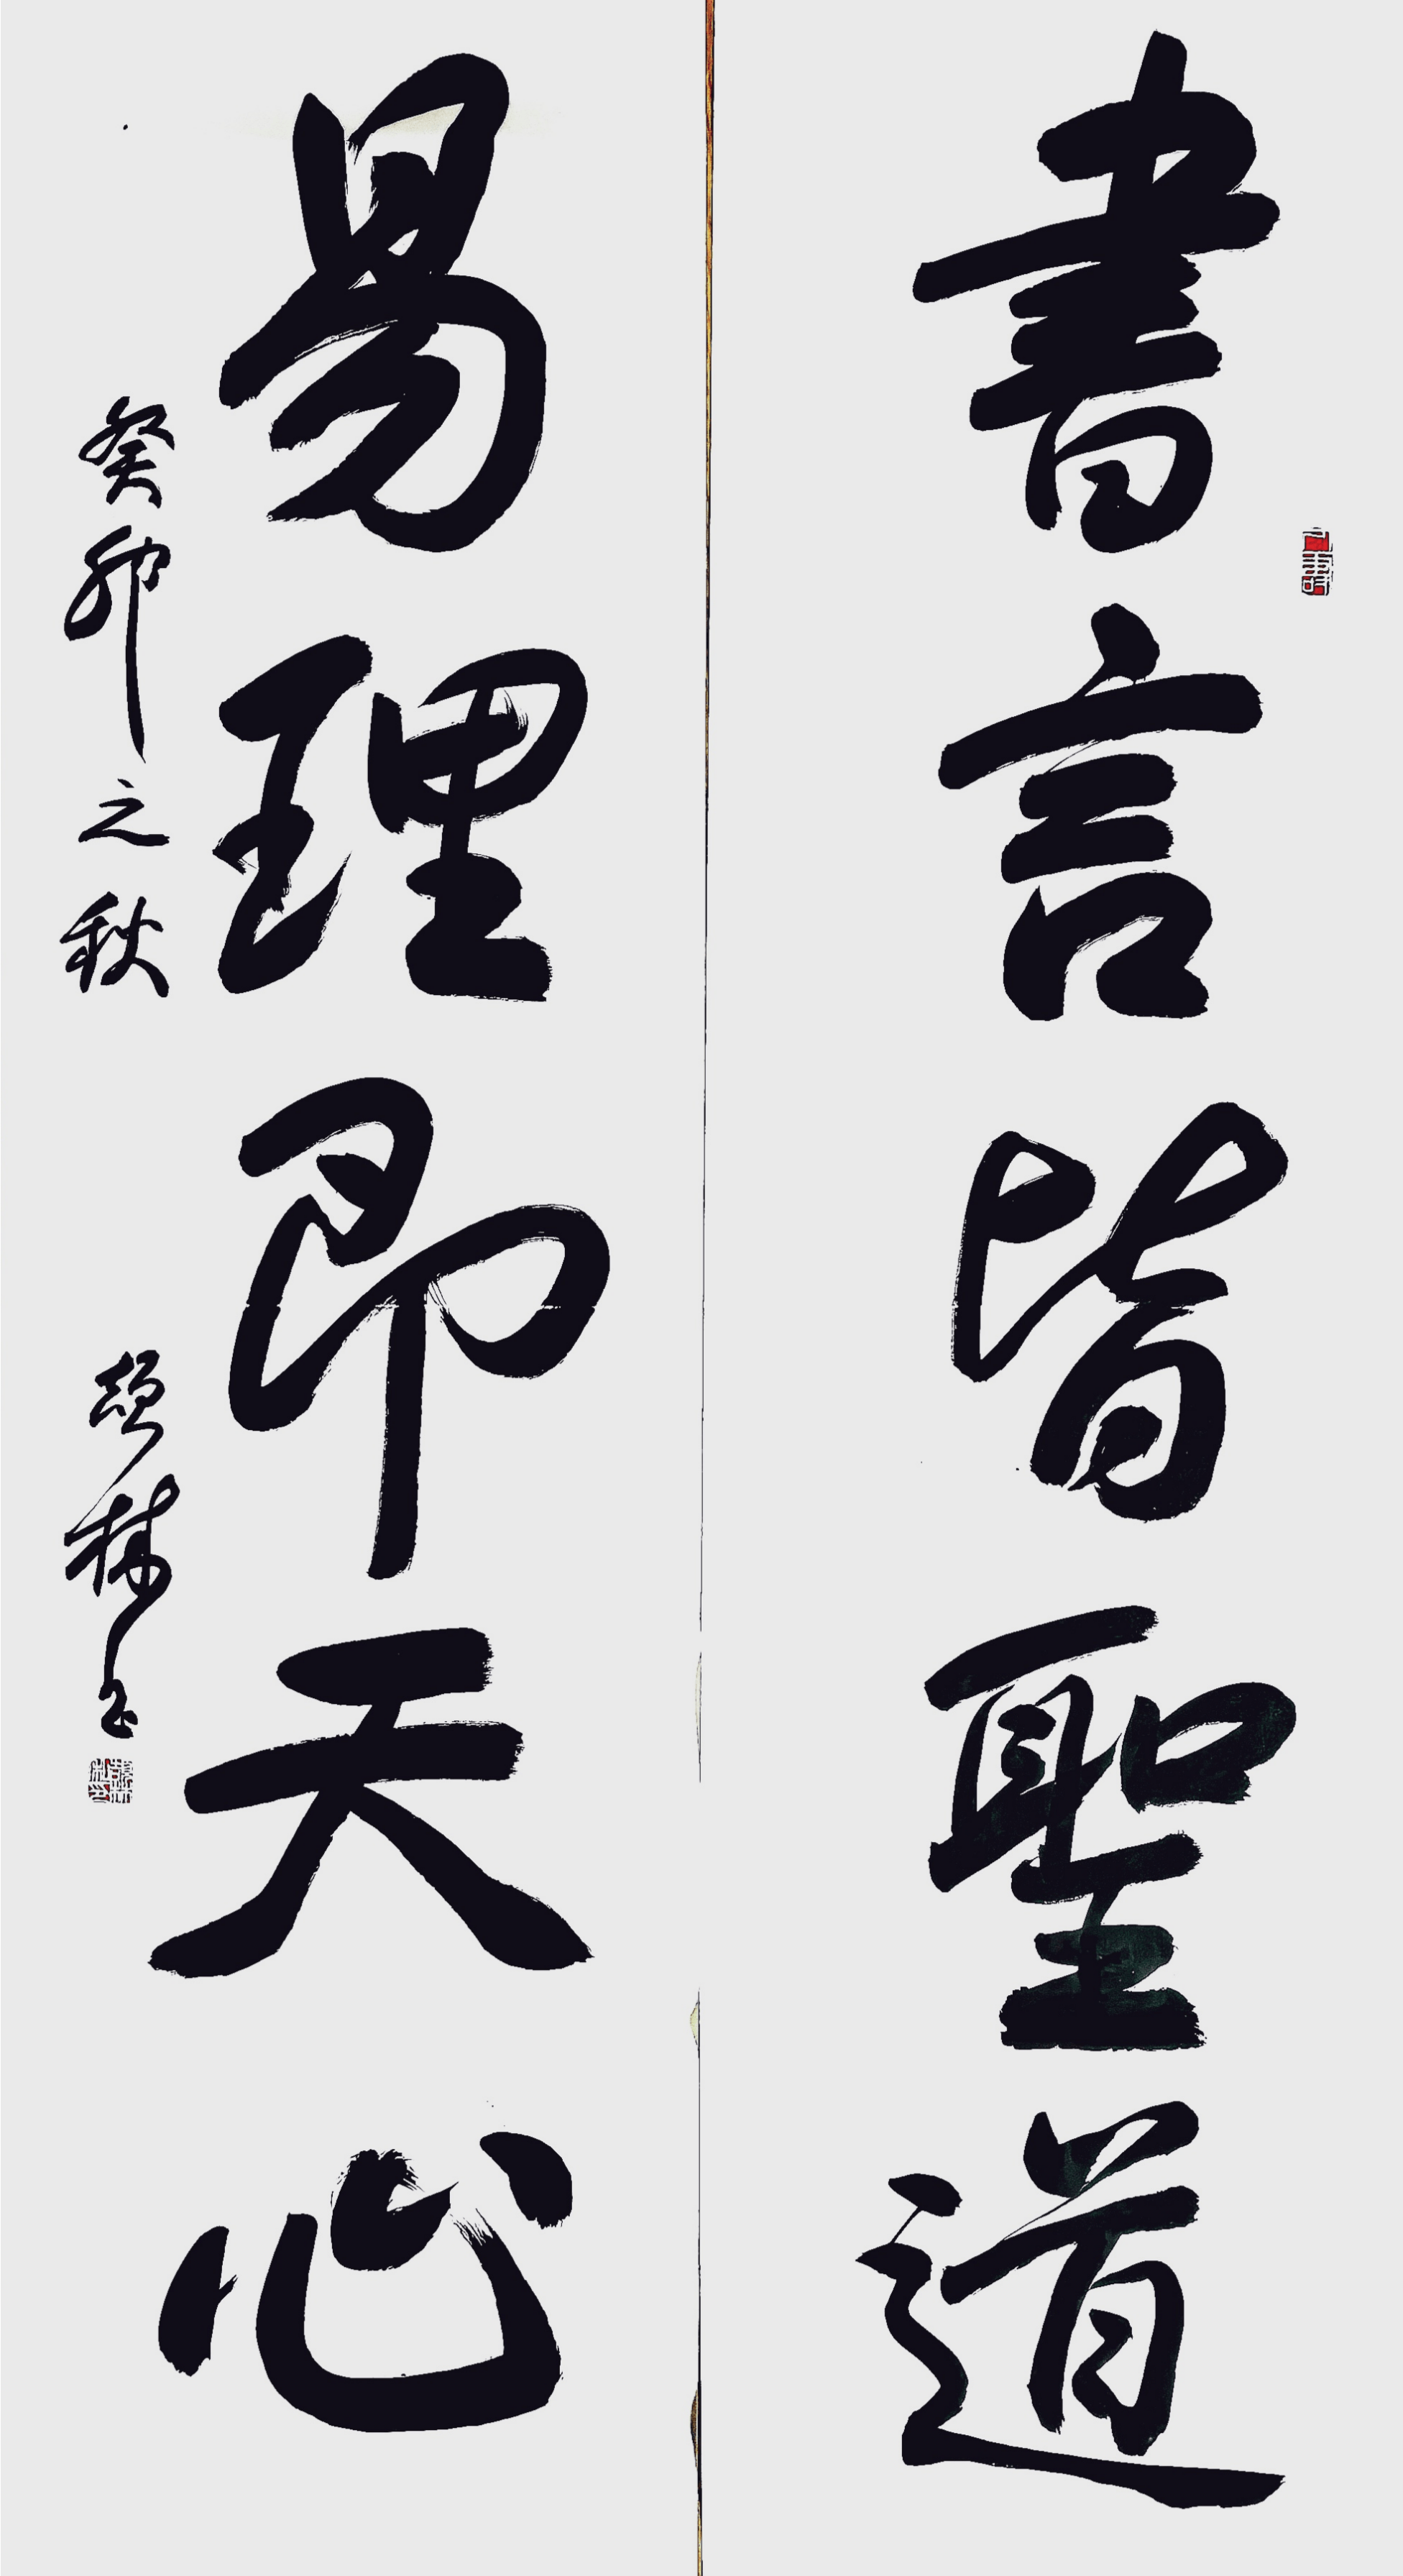 書言皆聖道
易理即天心
癸卯之秋